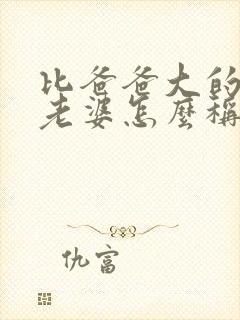 比爸爸大的
老婆怎麼稱
仇富